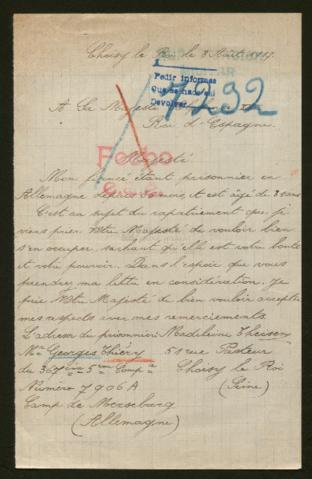 Choisy le Roi le 8 Août 1917.
Pedir informes
Que se hace en
Devolver
7292
A Sa Majesté
Roi d'Espagne.
Majesté
Mon fiancé étant prisonnier en
Allemagne depuis mois, et est âgé de ans
C'est au sujet du rapatriement que je
viens prier Votre Majesté de vouloir bien
s'en occuper, sachant qu'elle est votre bonté
et votre pouvoir. Dans l'espoir que vous
prendrez ma lettre en considération, je
prie Votre Majesté de bien vouloir accepter
mes respects avec mes remerciements.
L'adresse du prisonnier: Madeleine Theisen
Mr Georges Thiéry 51 rue Pasteur
du 367ème 5ème Compie Choisy le Roi
Numéro 7906A (Seine)
Camp de Merseburg
(Allemagne)